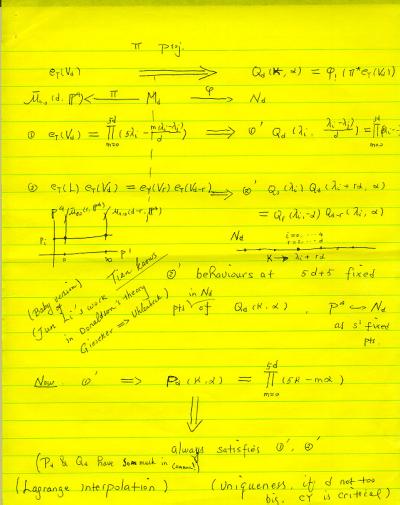 π proj.
e_T(V_d) ⟹ Q_d(K, α) = φ_!(π*e_T(V_d))
M̄_{0,0}(d, P⁴) ←π— M_d —φ→ N_d
① e_T(V_d) = ∏_{m=0}^{5d} (5λ_i - m(λ_i-λ_j)/d) ⟹ ①' Q_d(λ_i, (λ_j-λ_i)/d) = ∏_{m=0}^{5d}
② e_T(L) e_T(V_d) = e_T(V_r) e_T(V_{d-r}) ⟹ ②' Q_0(λ_i) Q_d(λ_i + rd, α)
= Q_r(λ_i, -α) Q_{d-r}(λ_i, α)
P⁴
P_i
0 ∞ P¹
N_d i=0,...4
r=0,...d
K → λ_i + rd
(Baby version) of Tian knows
(Jun Li's work
in Donaldson's theory
Gieseker ⟹ Uhlenbeck)
②' behaviours at 5d+5 fixed
pts in N_d of Q_d(K, α). P⁴ ↪ N_d
as S¹ fixed
pts.
Now. ①' ⟹ P_d(K, α) = ∏_{m=0}^{5d} (5K - mα)
always satisfies ①', ②'
(P_d & Q_d have so much in common)
(Lagrange interpolation) (Uniqueness, if d not too
big, CY is critical)